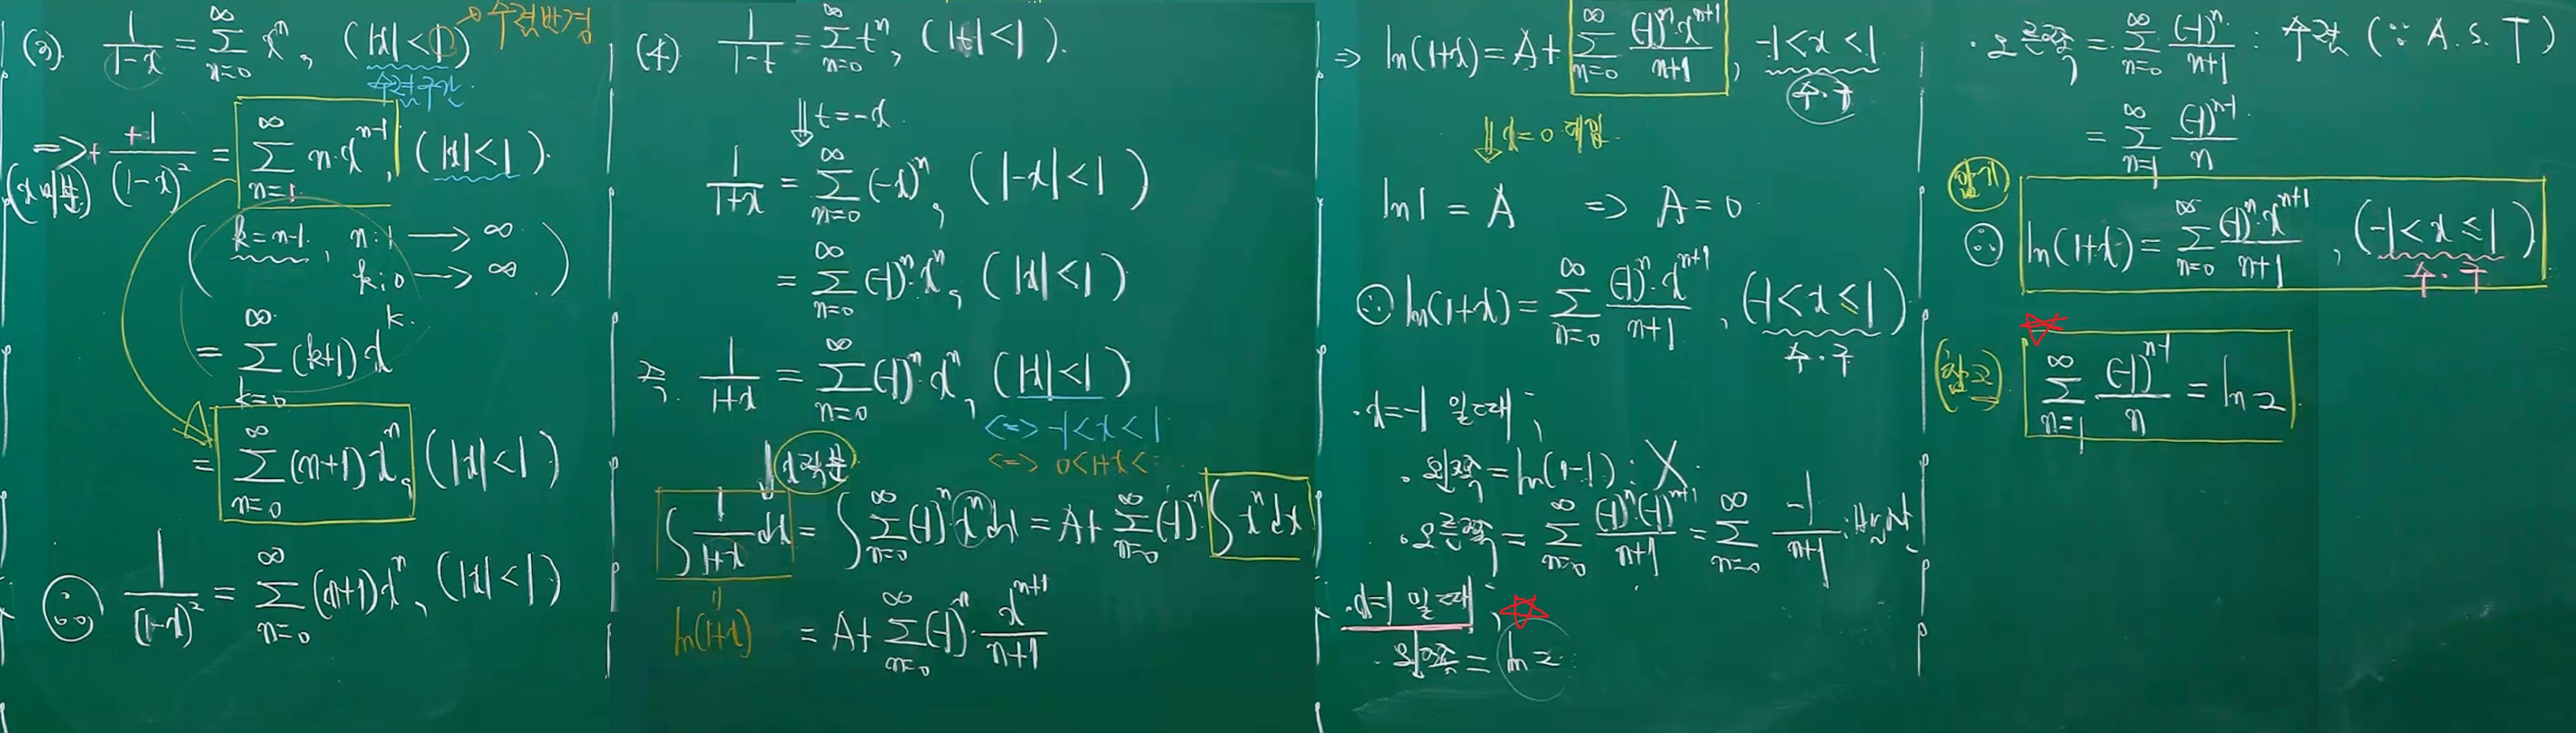 (3). 1/(1-x) = ∑_{n=0}^{∞} x^n, (|x|<1) → 수렴반경
수렴구간.
=> + +1/(1-x)^2 = ∑_{n=1}^{∞} n·x^{n-1}, (|x|<1).
(x미분)
( k=n-1, n:1 → ∞
k:0 → ∞ )
= ∑_{k=0}^{∞} (k+1) x^k.
= ∑_{n=0}^{∞} (n+1) x^n, (|x|<1)
∴ 1/(1-x)^2 = ∑_{n=0}^{∞} (n+1) x^n, (|x|<1)
(4) 1/(1-t) = ∑_{n=0}^{∞} t^n, (|t|<1).
⇓ t=-x.
1/(1+x) = ∑_{n=0}^{∞} (-x)^n, (|-x|<1)
= ∑_{n=0}^{∞} (-1)^n·x^n, (|x|<1)
즉. 1/(1+x) = ∑_{n=0}^{∞} (-1)^n x^n, (|x|<1)
<=> -1<x<1
<=> 0<1+x<
↓ x적분
∫ 1/(1+x) dx = ∫ ∑_{n=0}^{∞} (-1)^n x^n dx = A+ ∑_{n=0}^{∞} (-1)^n ∫ x^n dx
ln(1+x) = A+ ∑_{n=0}^{∞} (-1)^n · x^{n+1}/(n+1)
=> ln(1+x) = A+ ∑_{n=0}^{∞} (-1)^n x^{n+1}/(n+1), -1<x<1
수.구
⇓ x=0 대입.
ln1 = A => A=0
∴ ln(1+x) = ∑_{n=0}^{∞} (-1)^n·x^{n+1}/(n+1), (-1<x≤1)
수.구
·x=-1 일때;
·왼쪽 = ln(1-1) : X.
·오른쪽 = ∑_{n=0}^{∞} (-1)^n(-1)^{n+1}/(n+1) = ∑_{n=0}^{∞} -1/(n+1) : 발산
·x=1 일때;
·왼쪽 = ln2
·오른쪽 = ∑_{n=0}^{∞} (-1)^n/(n+1) : 수렴 (∵ A.S.T)
= ∑_{n=1}^{∞} (-1)^{n-1}/n
암기
∴ ln(1+x) = ∑_{n=0}^{∞} (-1)^n·x^{n+1}/(n+1), (-1<x≤1)
수.구
(참고) ∑_{n=1}^{∞} (-1)^{n-1}/n = ln2